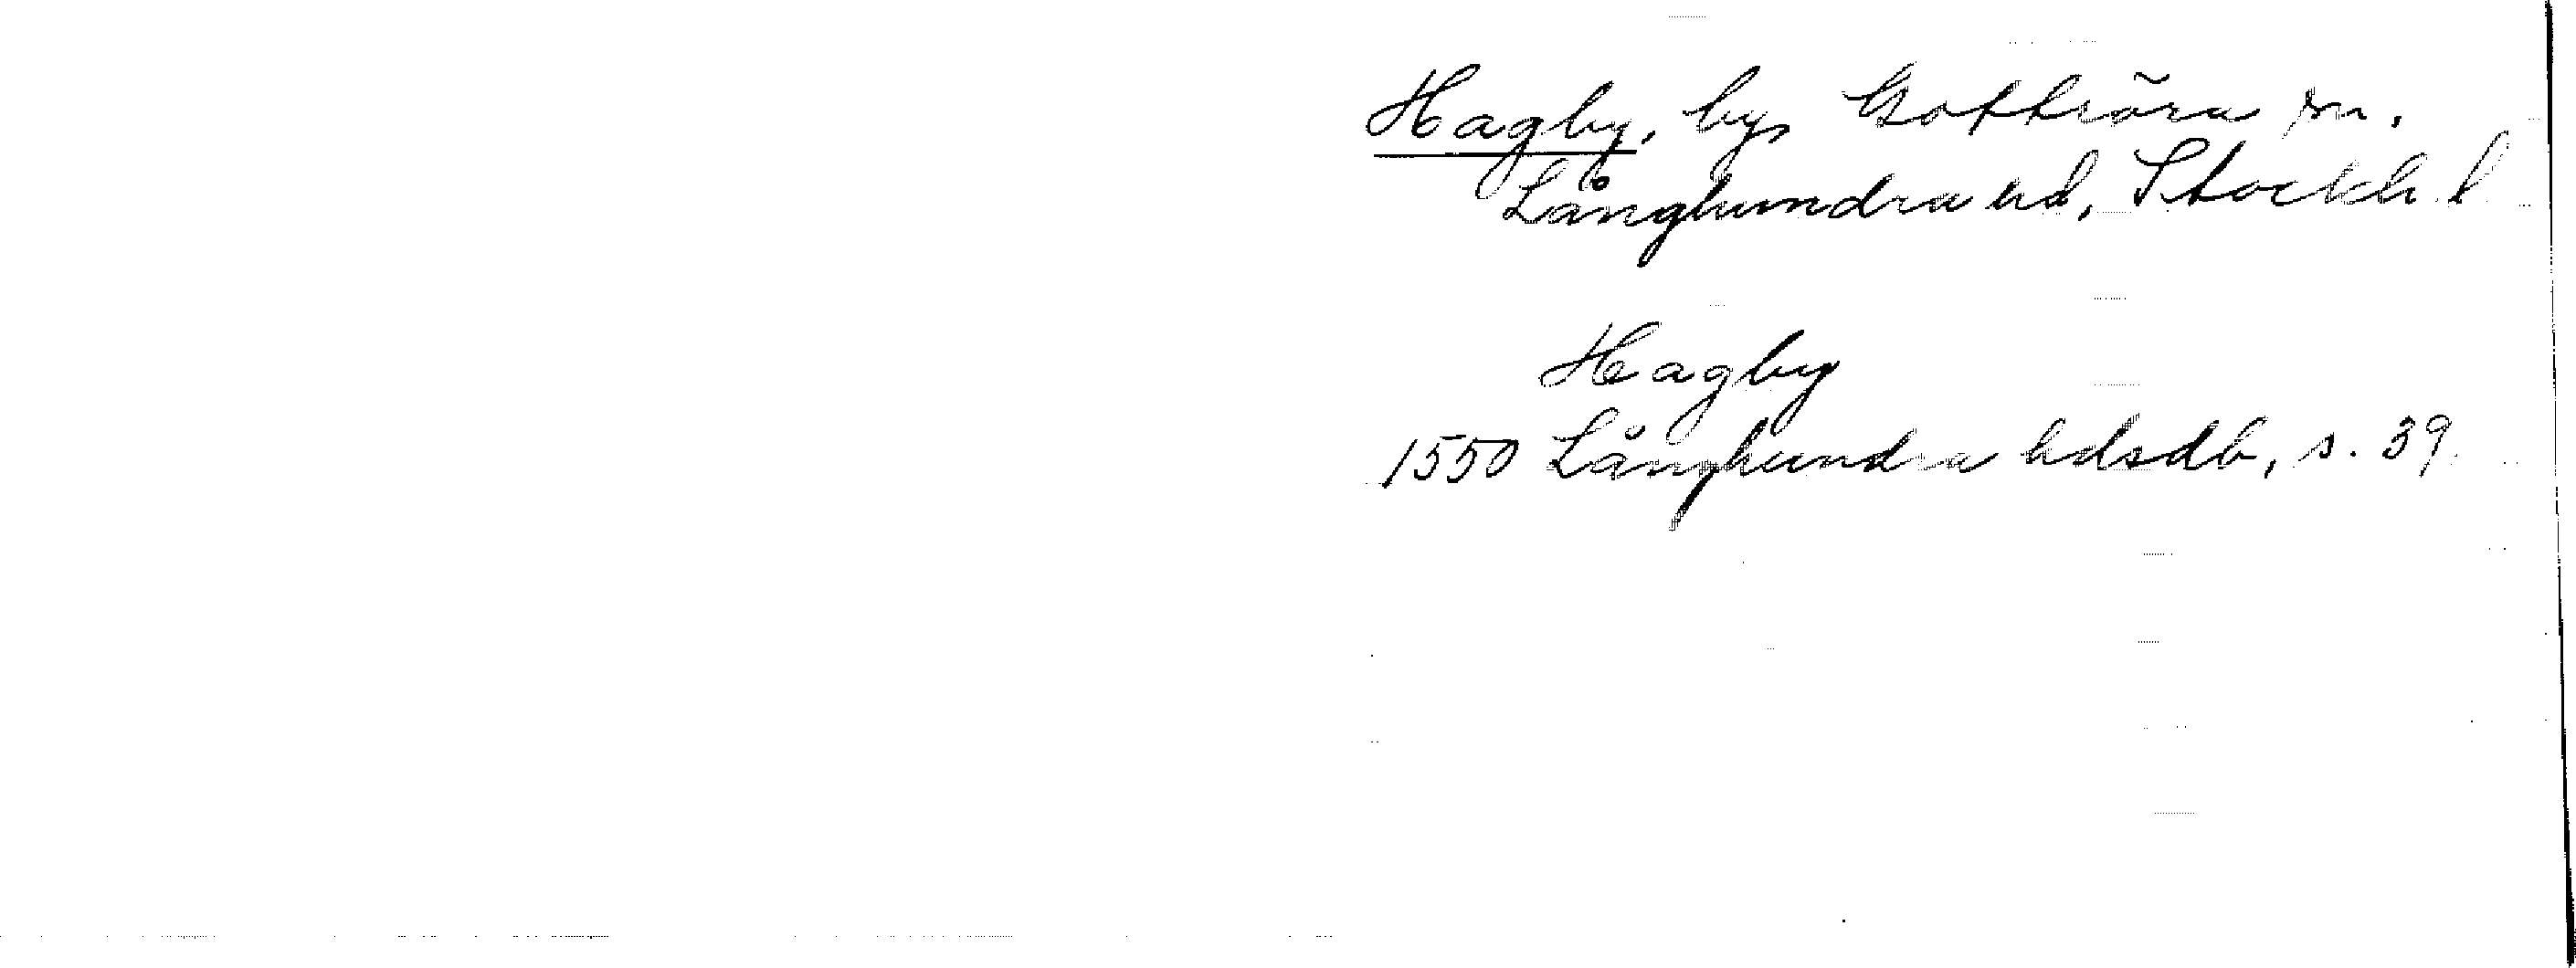 Hagby, by, Gottröra sn.
Långhundra hd, Stockh. l
Hagby
1550 Långhundra hdsdb, s. 39.